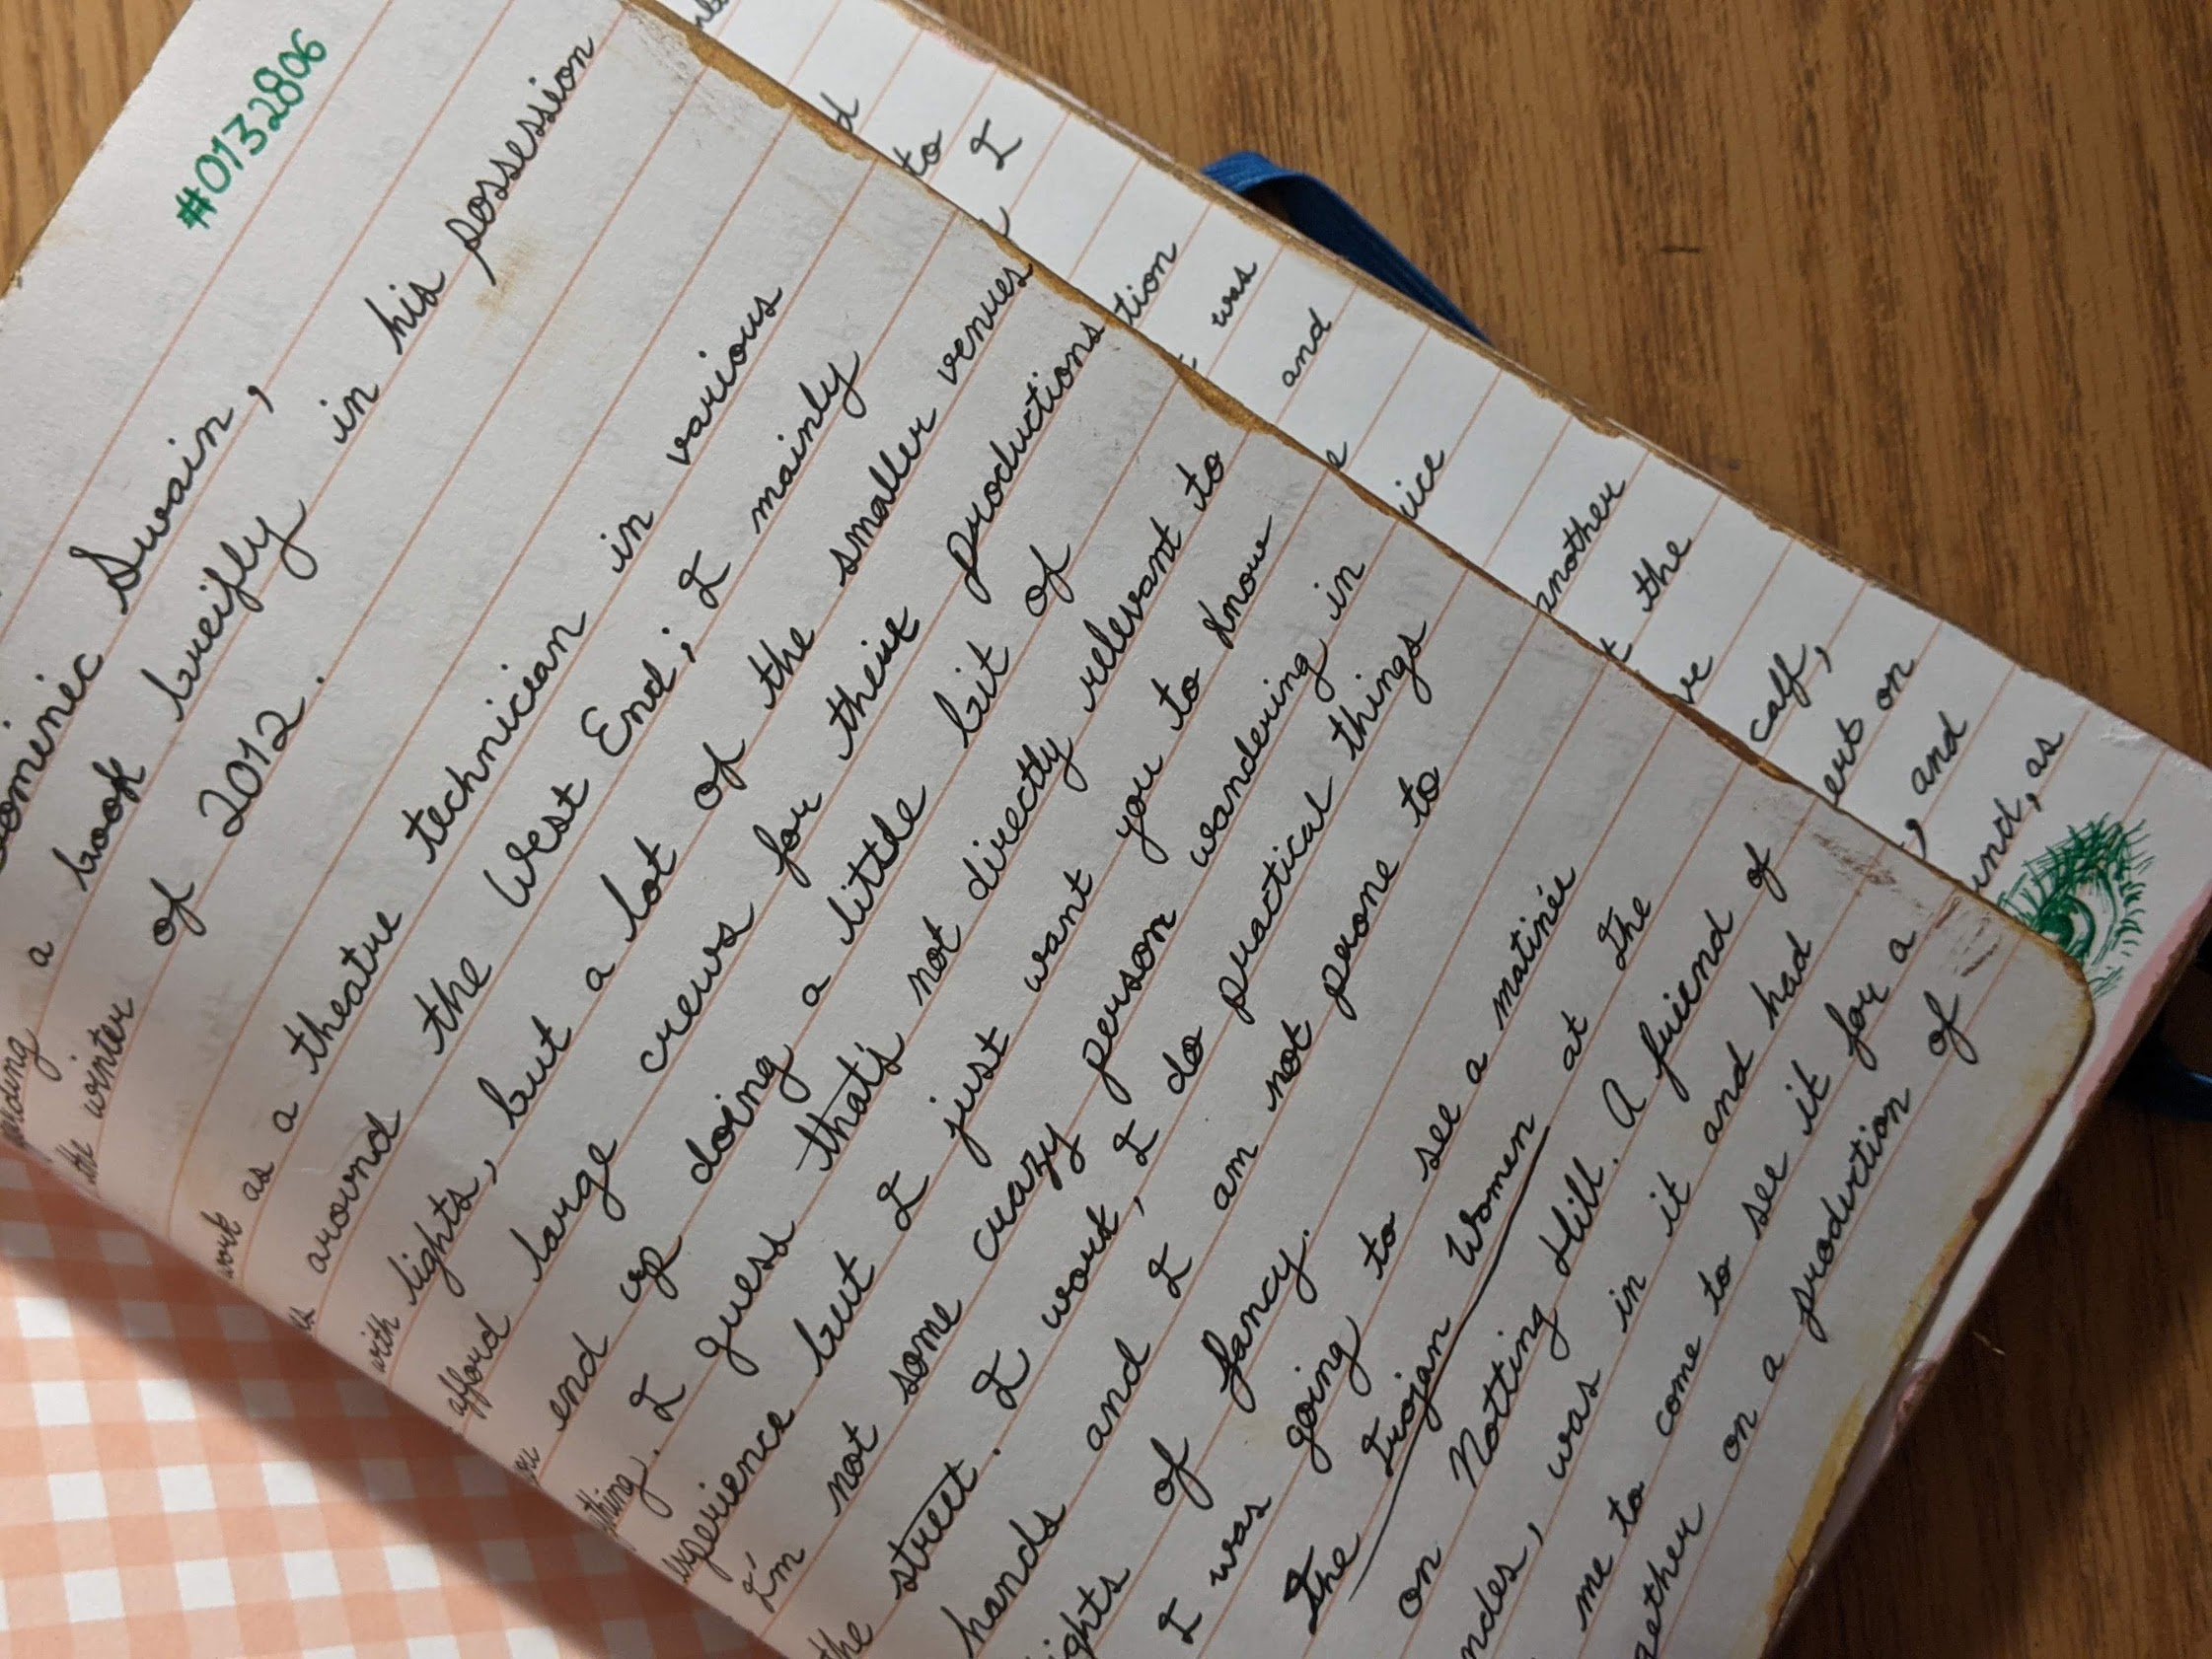 #0132806
Dominic Swain,
a book breifly in his possession
the winter of 2012.
work as a theatre technician in various
around the West End; I mainly
with lights, but a lot of the smaller venues
afford large crews for their productions
end up doing a little bit of
thing. I guess that's not directly relevant to
experience but I just want you to know
I'm not some crazy person wandering in
the street. I work, I do practical things
hands and I am not prone to
of fancy.
I was going to see a matineé
The Trojan Women at The
on Notting Hill. A friend of
was in it and had
me to come to see it for a
on a production of
to
I
tion
was
and
another
the
calf,
on
and
as